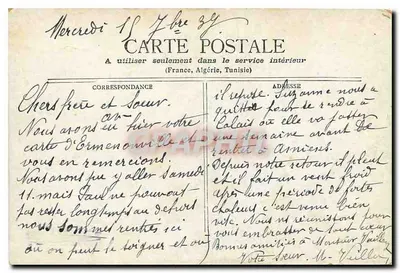 Mercredi 15 7bre 39
CARTE POSTALE
A utiliser seulement dans le service intérieur
(France, Algérie, Tunisie)
CORRESPONDANCE
ADRESSE
Chers frère et soeur.
Nous avons eu hier votre
carte d'Ermenonville et
vous en remercions.
Nous avons pu y aller Samedi
11. mais Paul ne pouvant
pas rester longtemps au dehors
nous sommes rentrés ici
où on peut le soigner et où
il repose. Suzanne nous a
quittés pour se rendre à
Calais où elle va passer
une semaine avant de
à Asnières.
Depuis notre retour il pleut
et il fait un vent froid
après une période de fortes
chaleurs c'est venu bien
vite. Nous nous réunissons pour
vous embrasser de tout coeur
Bonnes amitiés à Monsieur
Votre Soeur. M.